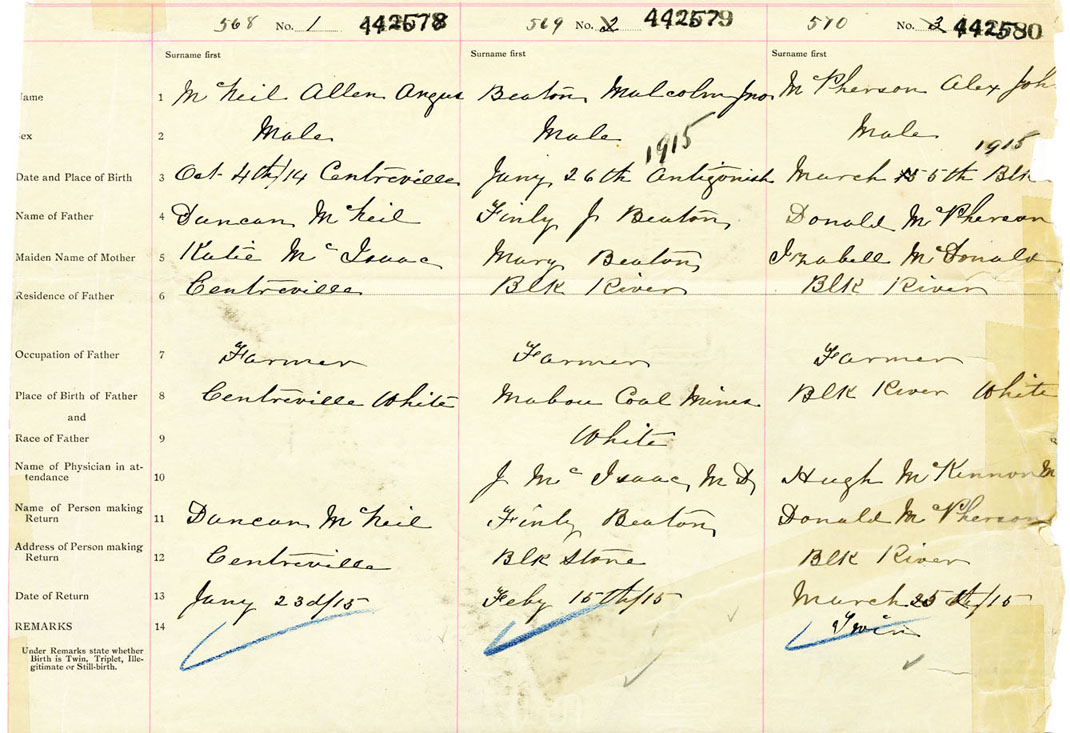 568 No. 1 442578 569 No. 2 442579 570 No. 3 442580
Surname first Surname first Surname first
Name 1 McNeil Allen Angus Beaton Malcolm Jno McPherson Alex Joh
Sex 2 Male Male Male
1915 1915
Date and Place of Birth 3 Oct 4th/14 Centreville Jany 26th Antigonish March 5th Blk
Name of Father 4 Duncan McNeil Finly J Beaton Donald McPherson
Maiden Name of Mother 5 Katie McIsaac Mary Beaton Izabell McDonald
Residence of Father 6 Centreville Blk River Blk River
Occupation of Father 7 Farmer Farmer Farmer
Place of Birth of Father 8 Centreville White Mabou Coal Mines Blk River White
and
Race of Father 9 White
Name of Physician in at-
tendance 10 J McIsaac MD Hugh McKinnon M
Name of Person making
Return 11 Duncan McNeil Finly Beaton Donald McPherson
Address of Person making
Return 12 Centreville Blk Stone Blk River
Date of Return 13 Jany 23d/15 Feby 15th/15 March 25th/15
REMARKS 14 Twin
Under Remarks state whether
Birth is Twin, Triplet, Ille-
gitimate or Still-birth.